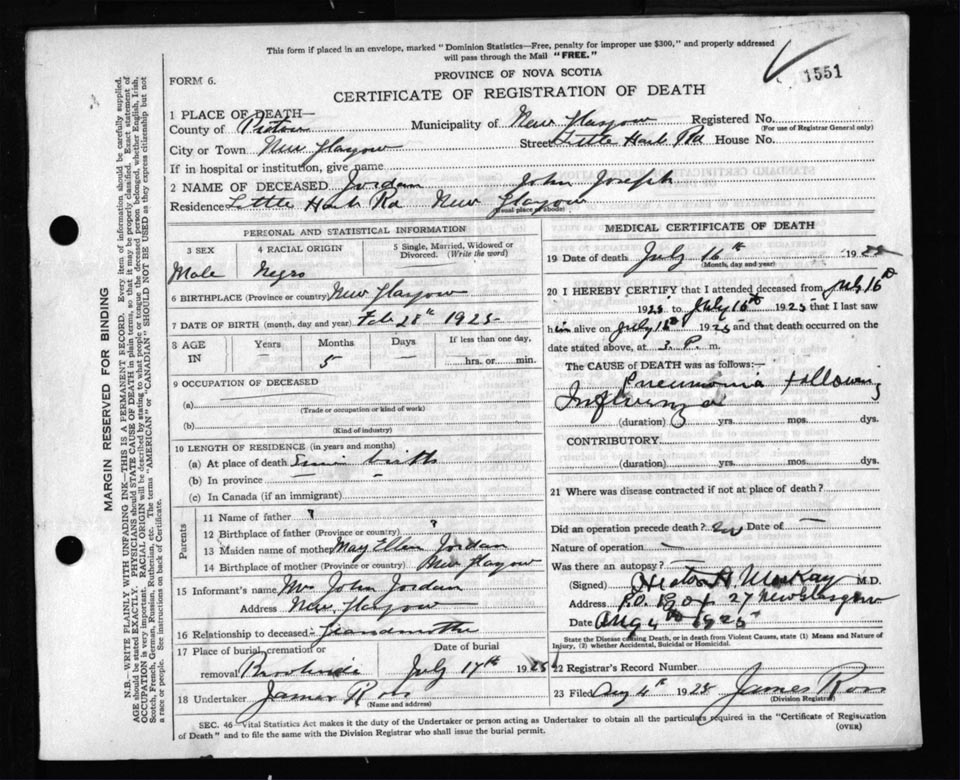 This form if placed in an envelope, marked "Dominion Statistics—Free, penalty for improper use $300," and properly addressed
will pass through the Mail "FREE."
1551
FORM 6.
PROVINCE OF NOVA SCOTIA
CERTIFICATE OF REGISTRATION OF DEATH
1 PLACE OF DEATH—
County of Pictou Municipality of New Glasgow Registered No.
(For use of Registrar General only)
City or Town New Glasgow Street Little Harb Rd House No.
If in hospital or institution, give name
2 NAME OF DECEASED Jordan John Joseph
Residence Little Harb Rd New Glasgow
(Usual place of abode)
PERSONAL AND STATISTICAL INFORMATION
3 SEX 4 RACIAL ORIGIN 5 Single, Married, Widowed or Divorced. (Write the word)
Male Negro
6 BIRTHPLACE (Province or country) New Glasgow
7 DATE OF BIRTH (month, day and year) Feb 28th 1925
8 AGE IN Years Months Days If less than one day,
— 5 — hrs. or min.
9 OCCUPATION OF DECEASED
(a)
(Trade or occupation or kind of work)
(b)
(Kind of industry)
10 LENGTH OF RESIDENCE (in years and months)
(a) At place of death Since birth
(b) In province — —
(c) In Canada (if an immigrant)
Parents
11 Name of father ?
12 Birthplace of father (Province or country) ?
13 Maiden name of mother May Ellen Jordan
14 Birthplace of mother (Province or country) New Glasgow
15 Informant's name Mrs John Jordan
Address New Glasgow
16 Relationship to deceased Grandmother
17 Place of burial, cremation or removal Date of burial
July 17th 1925
18 Undertaker James Ross
(Name and address)
MEDICAL CERTIFICATE OF DEATH
19 Date of death July 16th 1925
(Month, day and year)
20 I HEREBY CERTIFY that I attended deceased from July 16th
1925 to July 16th 1925 that I last saw
him alive on July 16th 1925 and that death occurred on
date stated above, at 3. P. m.
The CAUSE of DEATH was as follows:
Pneumonia following
Influenza
(duration) yrs. mos. dys.
CONTRIBUTORY
(duration) yrs. mos. dys.
21 Where was disease contracted if not at place of death?
Did an operation precede death? no Date of —
Nature of operation —
Was there an autopsy? —
(Signed) Hector H. McKay M.D.
Address P.O. Box 27 New Glasgow
Date Aug 4th 1925
State the Disease causing Death, or in death from Violent Causes, state (1) Means and Nature of
Injury, (2) whether Accidental, Suicidal or Homicidal.
22 Registrar's Record Number
23 Filed Aug 4th 1925 James Ross
(Division Registrar)
SEC. 46—Vital Statistics Act makes it the duty of the Undertaker or person acting as Undertaker to obtain all the particulars required in the "Certificate of Registration
of Death" and to file the same with the Division Registrar who shall issue the burial permit.
(OVER)
MARGIN RESERVED FOR BINDING
N.B.—WRITE PLAINLY WITH UNFADING INK—THIS IS A PERMANENT RECORD. Every item of information should be carefully supplied.
AGE should be stated EXACTLY. PHYSICIANS should STATE CAUSE OF DEATH in plain terms, so that it may be properly classified. Exact statement of
OCCUPATION is very important. RACIAL ORIGIN will be described by stating to what people or tongue the deceased person belonged, whether English, Irish,
Scotch, French, German, Russian, Ruthenian, etc. The terms "AMERICAN" or "CANADIAN" SHOULD NOT BE USED as they express citizenship but not
a race or people. See instructions on back of Certificate.